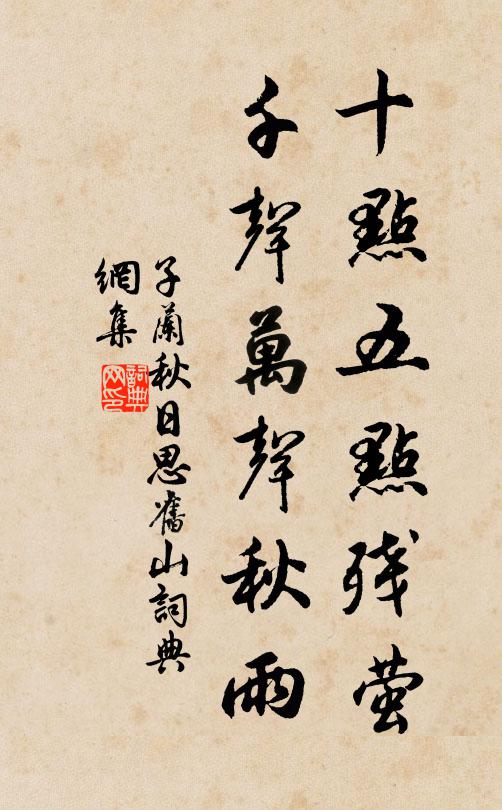 十點五點残萤
千聲萬聲秋雨
子蘭秋日思舊山詞典
網集
詞典
网印